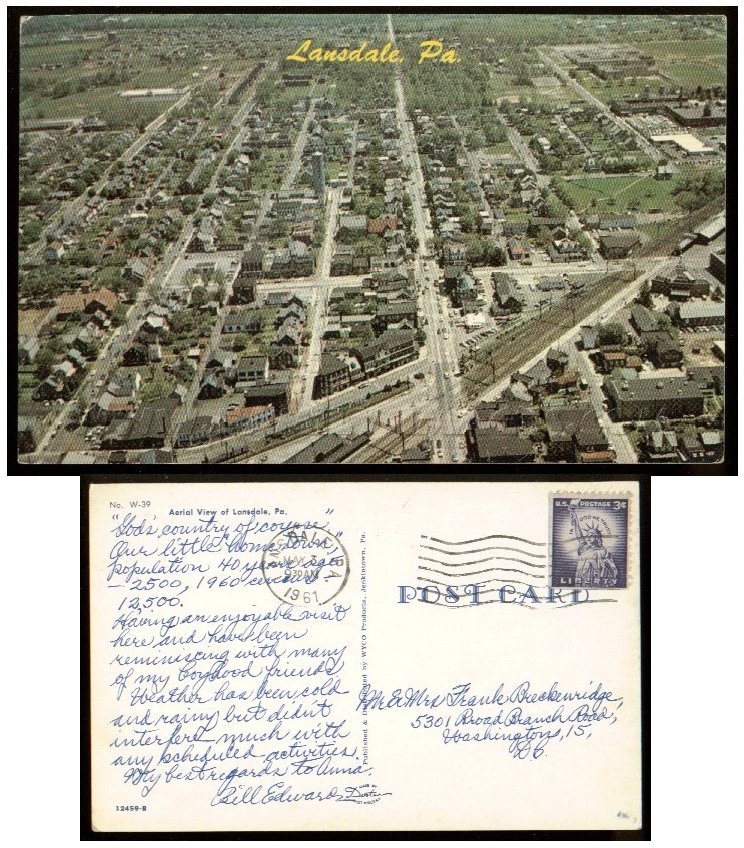 Lansdale, Pa.
No. W-39
Aerial View of Lansdale, Pa.
"God's country of course"
Our little "home town"
population 40 years ago
- 2500, 1960 census
12,500.
Having an enjoyable visit
here and have been
reminiscing with many
of my boyhood friends
Weather has been cold
and rainy but didn't
interfere much with
any scheduled activities.
My best regards to Anna.
Bill Edwards
12459-B
LANSDALE, PA
MAY 3
930AM
1961
Published & Distributed by WYCO Products, Jenkintown, Pa.
MADE BY
Dexter
WEST NYACK, NY
U.S. POSTAGE 3¢
IN GOD WE TRUST
LIBERTY
POST CARD
Mr & Mrs Frank Breckenridge,
5301 Broad Branch Road,
Washington, 15,
DC.